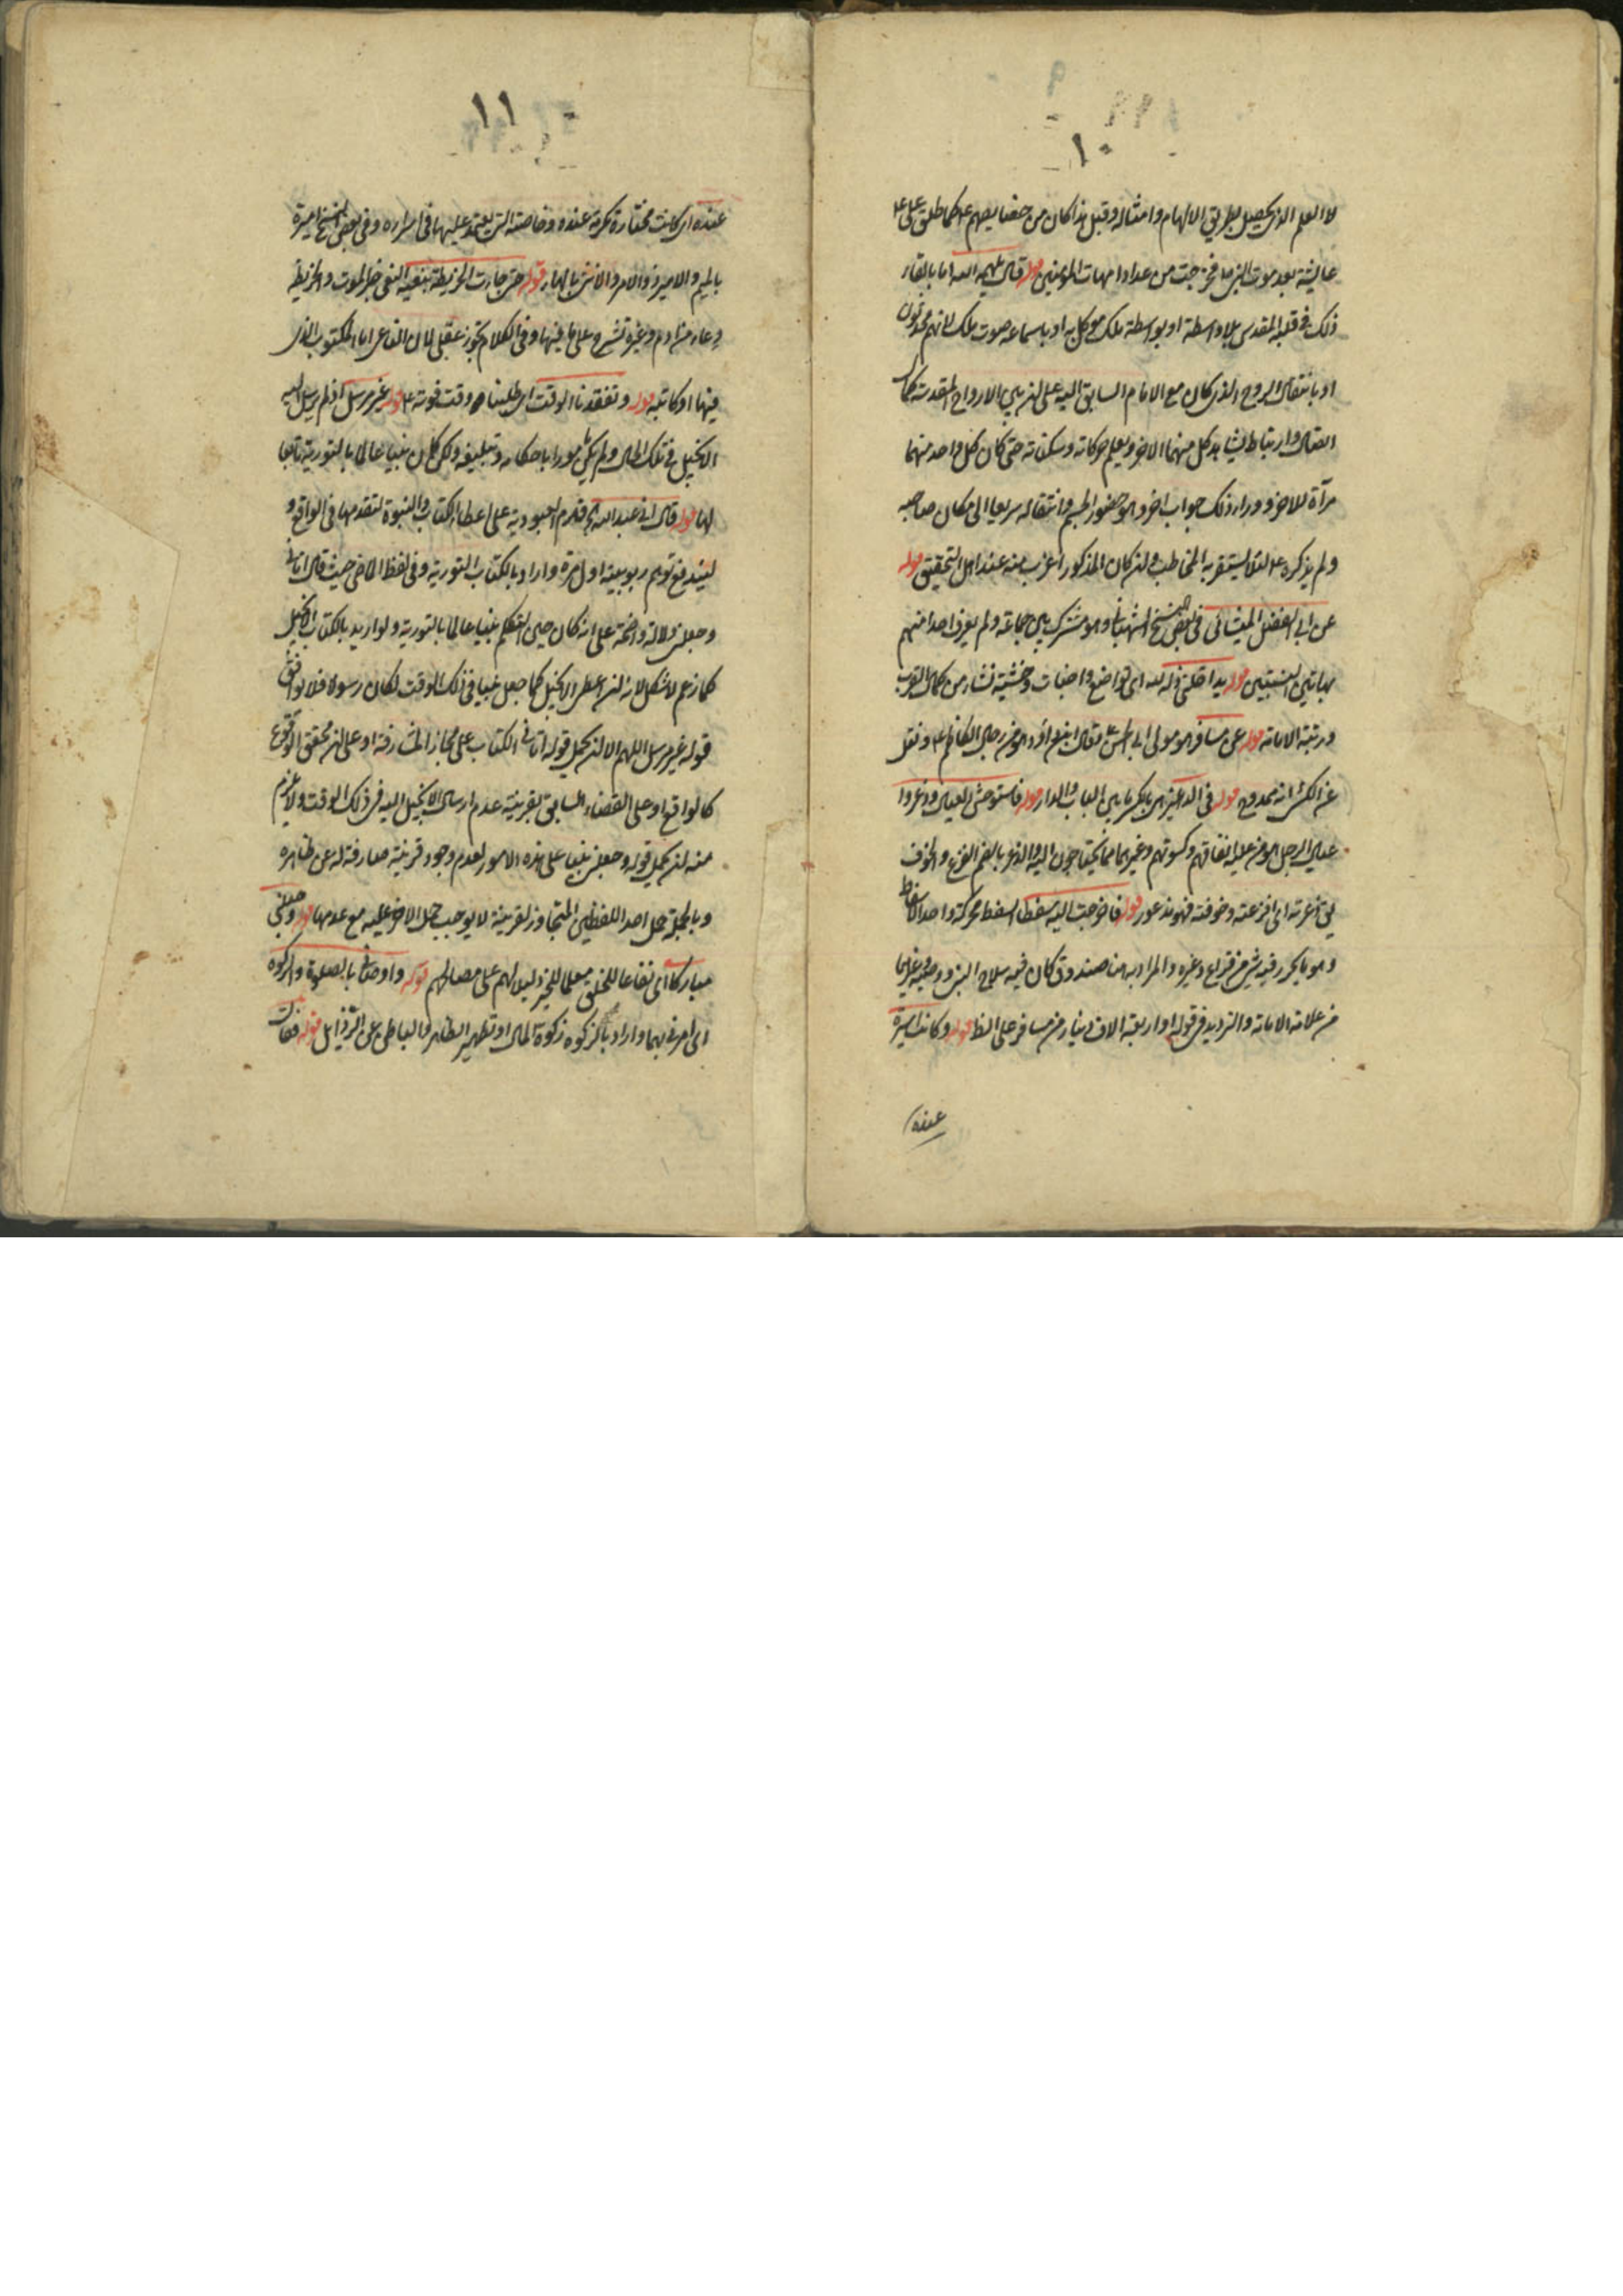 ١٠
لا العلم الذي يحصل بطريق الالهام وامثاله وقيل هذا كان من خصايصهم ع كما طلق علي ع
عايشة بعد موت النبي ص فخرجت من عداد امهات المؤمنين قوله قال يلهمه الله اما بالقاء
ذلك في قلبه المقدس بلا واسطة او بواسطة ملك موكل به او باسماعه صوت ملك لانهم محدثون
او بانتقال الروح الذي كان مع الامام السابق اليه على ان بين الارواح المقدسة كمال
اتصال وارتباط يشاهد كل منهما الاخر ويعلم حركاته وسكناته حتى كان كل واحد منهما
مرآة للاخر ووراء ذلك جواب اخر وهو حضور الجسم وانتقاله سريعا الى مكان صاحبه
ولم يذكره ع لئلا يستنقر به المخاطب وان كان المذكور اغرب منه عند اهل التحقيق قوله
عن ابي الفضل الميشائي في بعض النسخ الشهباني وهو مشترك بين جماعة ولم يعرف احد منهم
بهاتين النسبتين قوله تداخلني ذلة لله اي تواضع واخبات وخشية نشاء من كمال القرب
ورتبة الامامة قوله عن مسافر هو مولى ابي الحسن ع يقال ابن داود هو من رجال الكاظم ع ونقل
عن الكشي انه ممدوح قوله في الدهليز هو بالكسر ما بين الباب والدار قوله فاستوحش العيال وذعروا
عيال الرجل هو من عليه انفاقهم وكسوتهم وغيرهما مما يحتاجون اليه والذعر بالضم الفزع والخوف
يقال ذعرته اي افزعته وخوفته فهو مذعور قوله فاخرجت اليه سفطا السفط محركة واحد الاسفاط
وهو ما يحرز فيه شيء من قراع وغيره والمراد به هنا صندوق كان فيه سلاح النبي ووصيته وغيرهما
من علامة الامامة والترديد في قوله او اربعة الاف دينار من مسافر على الظ قوله وكانت اسيرة
عنده
١١
عنده اي كانت مختارة مكرمة عنده وخاصته التي يعتمد عليها في اسراره وفي بعض النسخ اميرة
بالميم والاميرة ذو الامر والانثى بالهاء قوله حتى جاءت الخريطة بنعيه النعي خبر الموت والخريطة
وعاء من ادم وغيره تشرح على ما فيها وفي الكلام تجوز عقلي لان الناعي اما المكتوب الذي
فيها او كاتبه قوله وتفقدنا الوقت اي طلبنا وقت فوته ع قوله غير مرسل اذ لم يرسل اليه
الانجيل في تلك الحال ولم يكن مامورا باحكامه وتبليغه ولكن كان نبيا عالما بالتورية تابعا
لها قوله قال اني عبد الله الخ قدم العبودية على اعطاء الكتاب والنبوة لتقدمها في الواقع و
ليندفع توهم ربوبيته اول مرة واراد بالكتاب التورية وفي لفظ الماضي حيث قال اتاني
وجعلني دلالة واضحة على انه كان حين التكلم نبيا عالما بالتورية ولو اريد بالكتاب الانجيل
كما زعم لاشكل لانه لو اعطى الانجيل كما جعل نبيا في ذلك الوقت لكان رسولا فلا يوافق
قوله غير مرسل اللهم الا ان يحمل قوله اتاني الكتاب على مجاز المشارفة او على ان محقق الوقوع
كالواقع او على القضاء السابق بقرينة عدم ارسال الانجيل اليه في ذلك الوقت ولا يلزم
منه ان يحمل قوله وجعلني نبيا على هذه الامور لعدم وجود قرينة صارفة له عن ظاهره
وبالجملة حمل احد اللفظين المتجاوز لقرينة لا يوجب حمل الاخر عليه مع عدمها قوله وجعلني
مباركا اي نفاعا للخلق معلما للخير دليلا لهم على مصالحهم قوله واوصاني بالصلوة والزكوة
اي امرني بهما واراد بالزكوة زكوة المال او تطهير الظاهر والباطن عن الرذايل قوله فقال